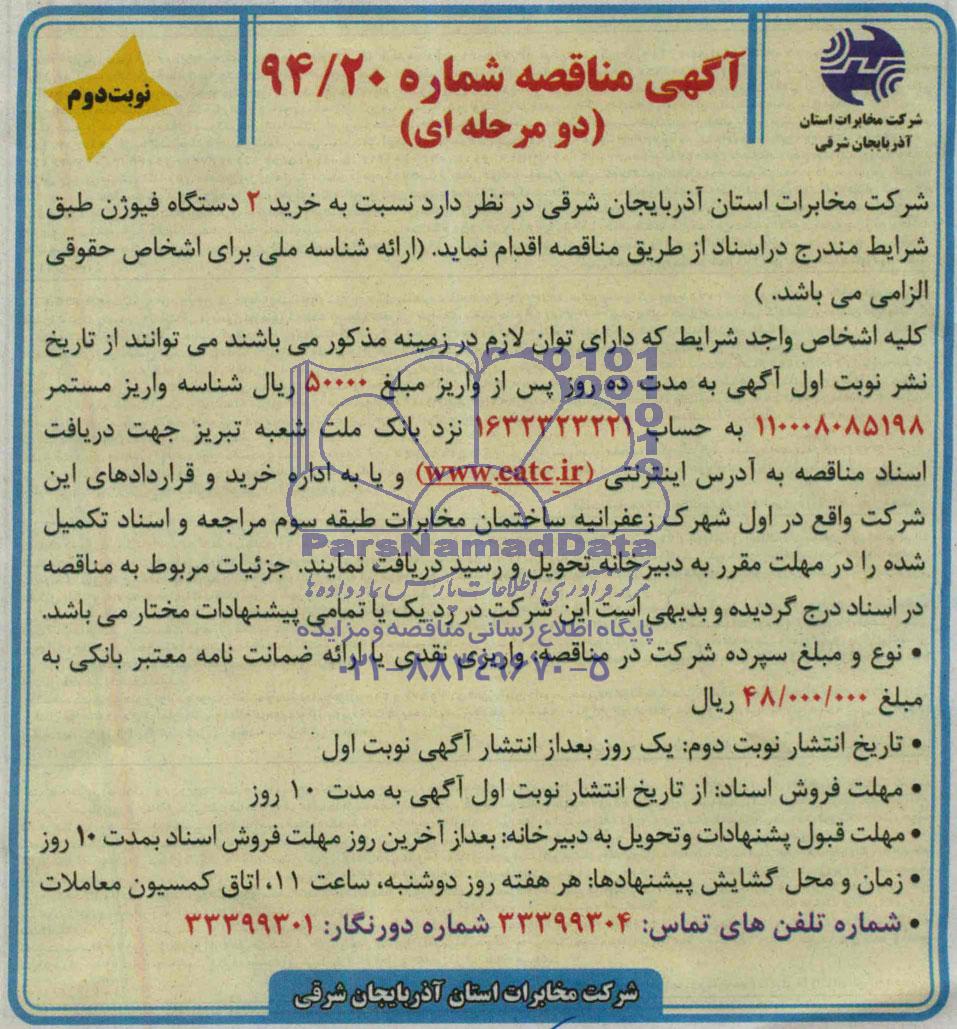 شرکت مخابرات استان
آذربایجان شرقی
آگهی مناقصه شماره ۹۴/۲۰
(دو مرحله ای)
نوبت دوم
شرکت مخابرات استان آذربایجان شرقی در نظر دارد نسبت به خرید ۲ دستگاه فیوژن طبق
شرایط مندرج دراسناد از طریق مناقصه اقدام نماید. (ارائه شناسه ملی برای اشخاص حقوقی
الزامی می باشد. )
کلیه اشخاص واجد شرایط که دارای توان لازم در زمینه مذکور می باشند می توانند از تاریخ
نشر نوبت اول آگهی به مدت ده روز پس از واریز مبلغ ۵۰۰۰۰ ریال شناسه واریز مستمر
۱۱۰۰۰۸۰۸۵۱۹۸ به حساب ۱۶۳۲۳۲۳۲۲۱ نزد بانک ملت شعبه تبریز جهت دریافت
اسناد مناقصه به آدرس اینترنتی (www.eatc.ir) و یا به اداره خرید و قراردادهای این
شرکت واقع در اول شهرک زعفرانیه ساختمان مخابرات طبقه سوم مراجعه و اسناد تکمیل
شده را در مهلت مقرر به دبیرخانه تحویل و رسید دریافت نمایند. جزئیات مربوط به مناقصه
در اسناد درج گردیده و بدیهی است این شرکت در رد یک یا تمامی پیشنهادات مختار می باشد.
• نوع و مبلغ سپرده شرکت در مناقصه: واریزی نقدی یا ارائه ضمانت نامه معتبر بانکی به
مبلغ ۴۸/۰۰۰/۰۰۰ ریال
• تاریخ انتشار نوبت دوم: یک روز بعداز انتشار آگهی نوبت اول
• مهلت فروش اسناد: از تاریخ انتشار نوبت اول آگهی به مدت ۱۰ روز
• مهلت قبول پشنهادات وتحویل به دبیرخانه: بعداز آخرین روز مهلت فروش اسناد بمدت ۱۰ روز
• زمان و محل گشایش پیشنهادها: هر هفته روز دوشنبه، ساعت ۱۱، اتاق کمسیون معاملات
• شماره تلفن های تماس: ۳۳۳۹۹۳۰۴ شماره دورنگار: ۳۳۳۹۹۳۰۱
شرکت مخابرات استان آذربایجان شرقی
ParsNamadData
مرکز فرآوری اطلاعات پارس نماد داده ها
پایگاه اطلاع رسانی مناقصه و مزایده
۰۲۱-۸۸۳۴۹۶۷۰-۵